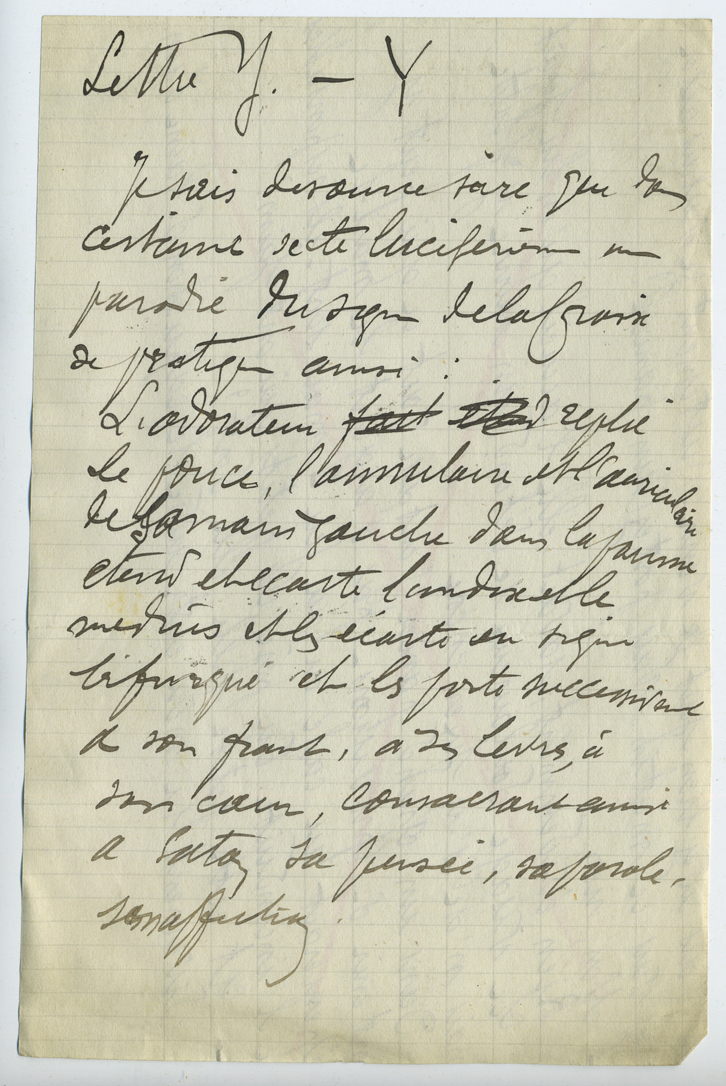 Lettre Y. — Y
Je sais de source sûre que dans
certaine secte luciférienne une
parodie du signe de la Croix
se pratique ainsi :
L'adorateur fait étend replie
le pouce, l'annulaire et l'auriculaire
de la main gauche dans la paume
étend et écarte l'index et le
medius et les écarte en signe
bifurqué et les porte successivement
à son front, à ses levres, à
son cœur, consacrant ainsi
a Satan sa pensée, sa parole,
son affection.